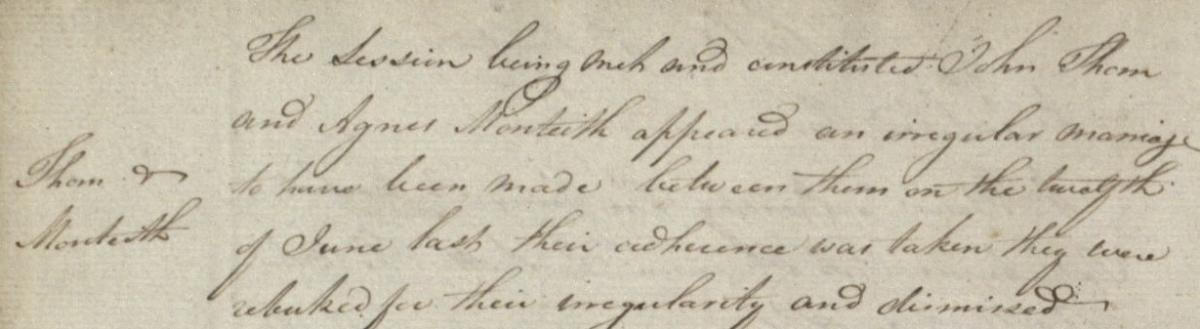 The Session being met and constituted John Thom
and Agnes Monteith appeared an irregular marriage
Thom &
to have been made between them on the twelfth
Monteith
of June last their adherence was taken they were
rebuked for their irregularity and dismissed